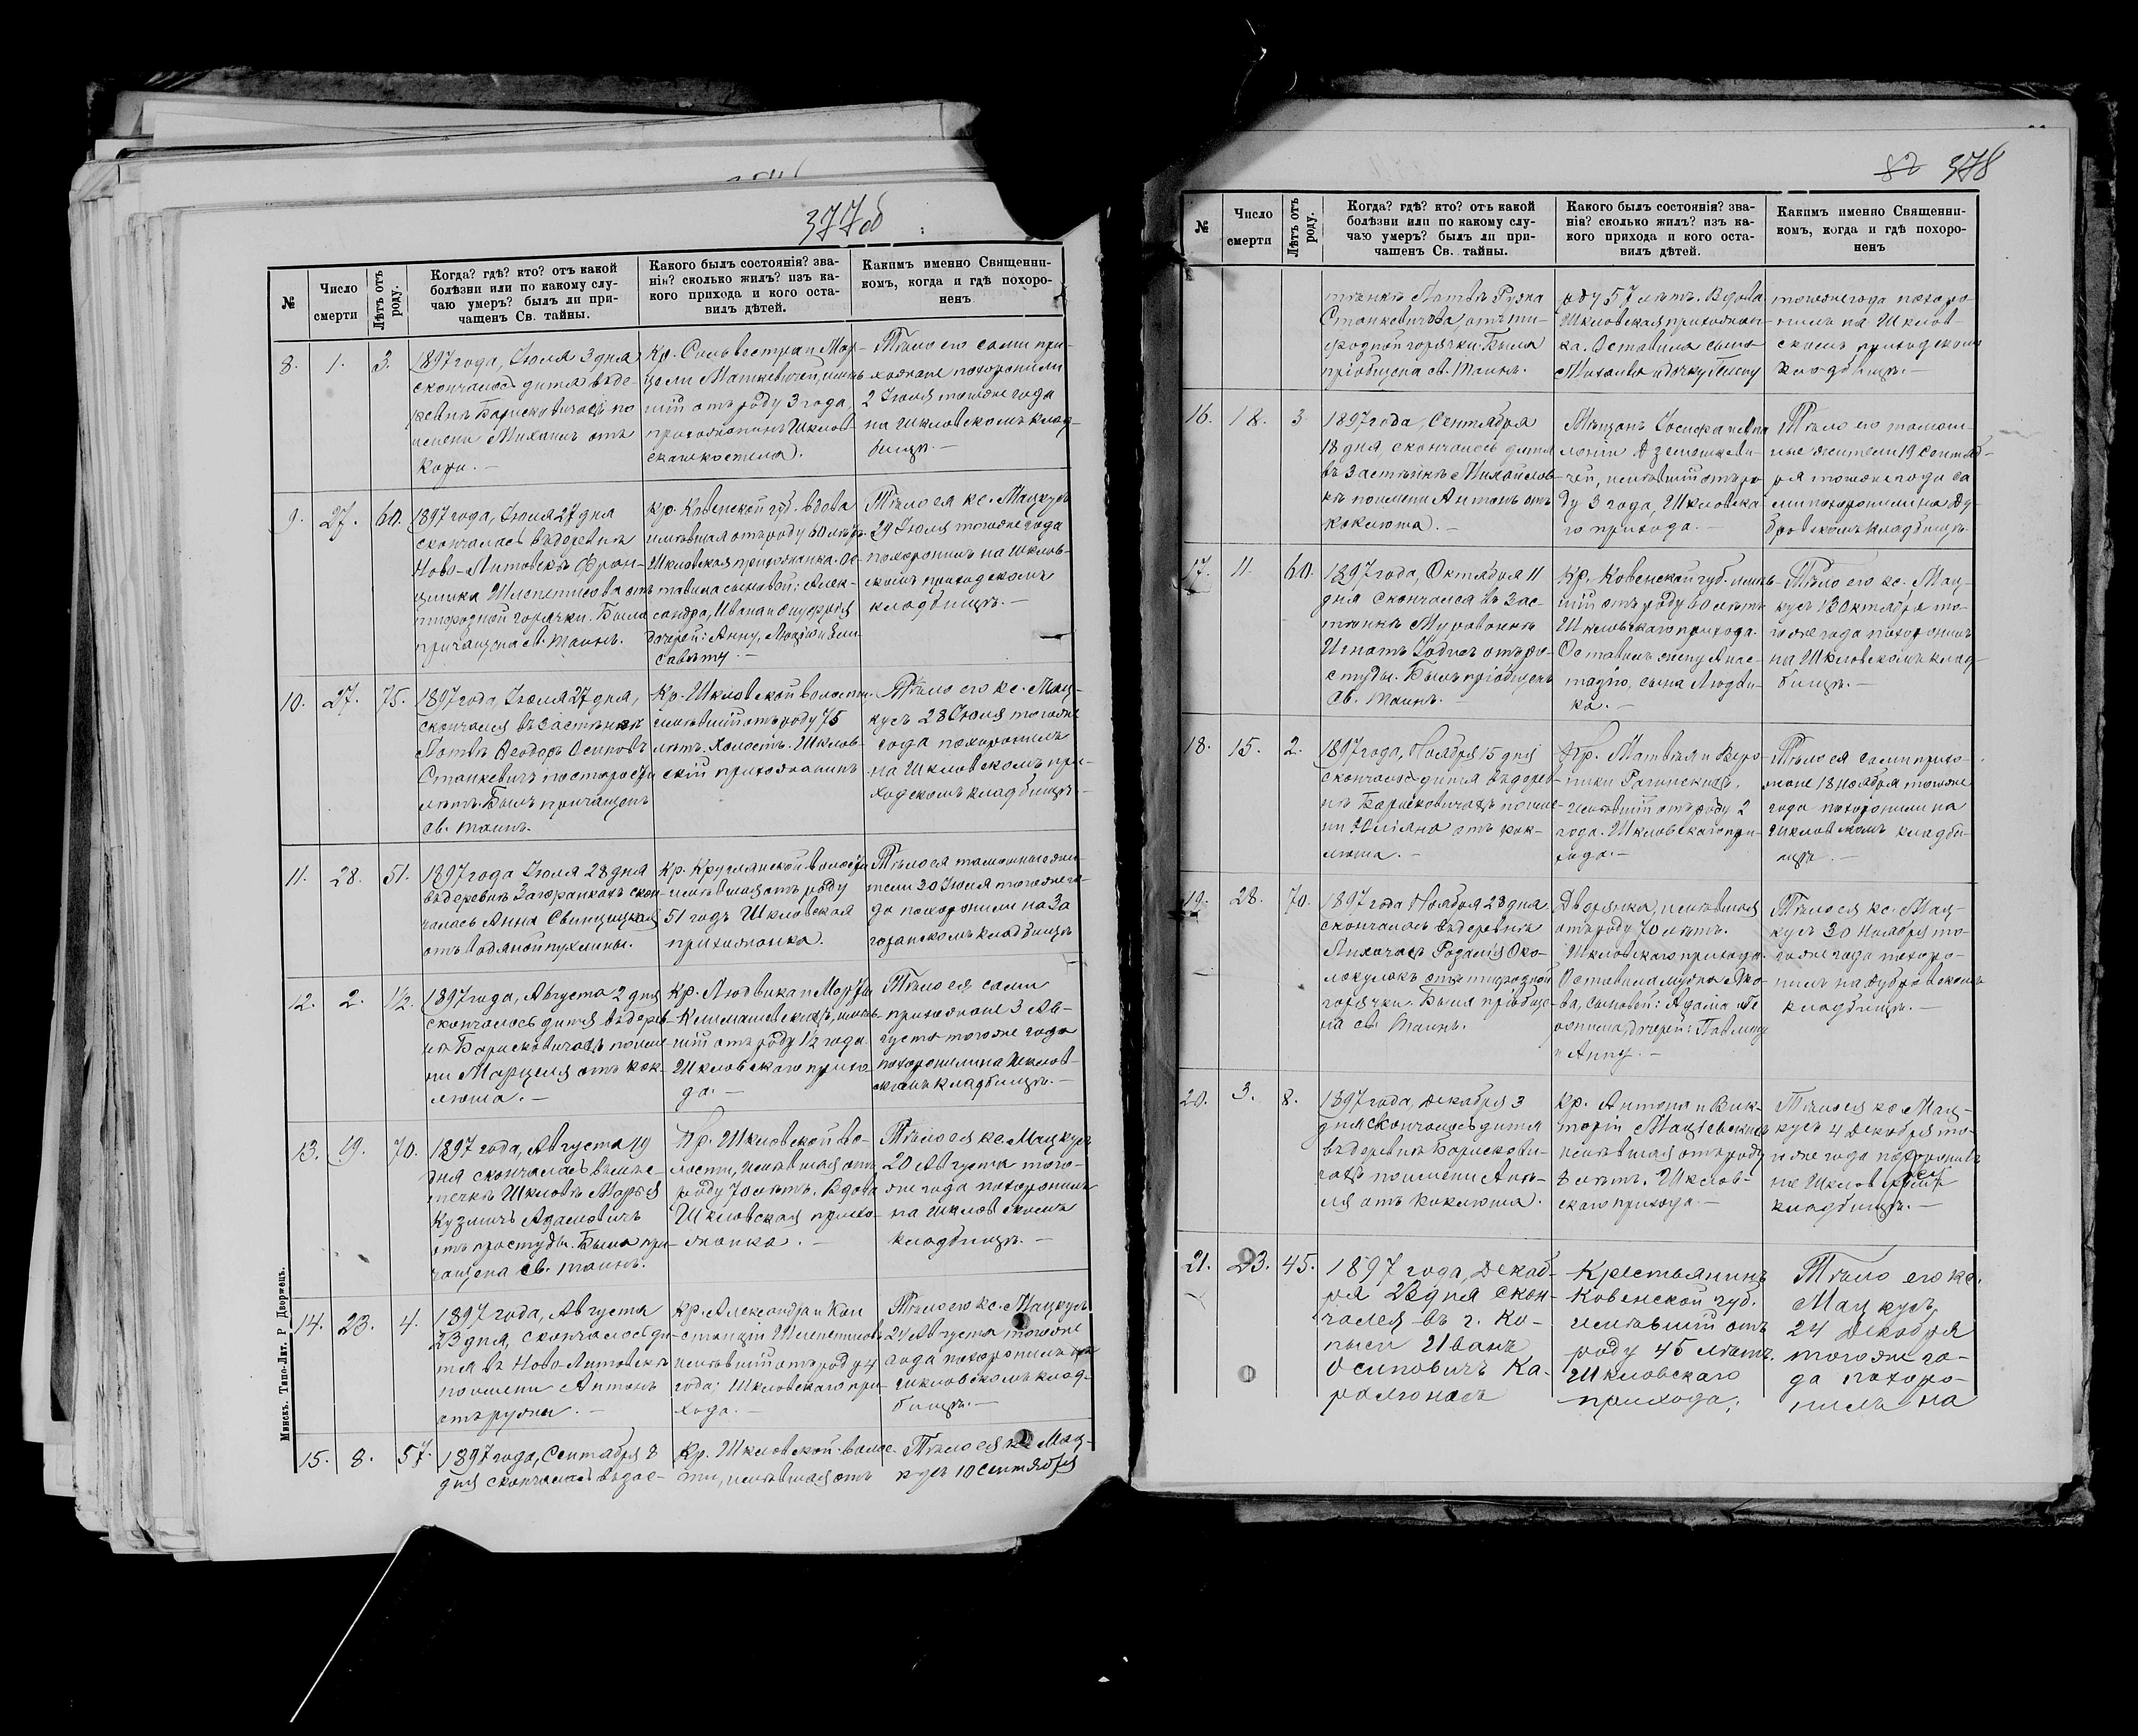 377об
№
Число
смерти
Лѣтъ отъ
роду.
Когда? гдѣ? кто? отъ какой
болѣзни или по какому слу-
чаю умеръ? былъ ли при-
чащенъ Св. тайны.
Какого былъ состоянія? зва-
нія? сколько жилъ? изъ ка-
кого прихода и кого оста-
вилъ дѣтей.
Какимъ именно Священни-
комъ, когда и гдѣ похоро-
ненъ
8.
1.
3.
1897 года, Іюля 3 дня
скончалось дитя въ де-
ревнѣ Барисковичахъ по
имени Михаилъ отъ
Кори. —
Кр. Сильвестра и Мар-
цели Маткевичей, имѣв-
шій отъ роду 3 года,
прихожанинъ Шклов-
скаго костела.
Тѣло его сами при-
хожане похоронили
2 Іюля тогоже года
на Шкловскомъ клад-
бищѣ. —
9.
27.
60.
1897 года, Іюля 27 дня
скончалась въ деревнѣ
Ново-Литовскѣ Фран-
цишка отъ
тифозной горячки. Была
причащена св. таинъ.
Кр. Ковенской губ. вдова
имѣвшая отъ роду 60 лѣтъ
Шкловская прихожанка. Ос-
тавила сыновей: Алек-
сандра, Ивана и Онуфрія
Дочерей: Анну, Люцію и Ели-
савету. —
Тѣло ея кс. Мацкусъ
29 Іюля тогоже года
похоронилъ на Шклов-
скомъ приходскомъ
кладбищѣ. —
10.
27.
75.
1897 года, Іюля 27 дня,
скончался въ застѣнкѣ
Латвѣ Ѳеодоръ Осиповъ
Станкевичъ по старости
лѣтъ. Былъ причащенъ
св. таинъ.
Кр. Шкловской волости
имѣвшій отъ роду 75
лѣтъ. Холостъ. Шклов-
скій прихожанинъ
Тѣло его кс. Мац-
кусъ 28 Іюля тогоже
года похоронилъ
на Шкловскомъ при-
ходскомъ кладбищѣ. —
11.
28.
51.
1897 года Іюля 28 дня
въ деревнѣ Загоранкахъ скон-
чалась Анна Свенцицкая
отъ водяной пухлины.
Кр. Круглянской волости
имѣвшая отъ роду
51 годъ Шкловская
прихожанка.
Тѣло ея тамошные жи-
тели 30 Іюля тогоже го-
да похоронили на За
горанскомъ кладбищѣ
12.
2.
1½.
1897 года, Августа 2 дня
скончалось дитя въ дерев-
нѣ Барисковичахъ по име-
ни Марцеля отъ кок-
люша. —
Кр. Людвика и Марты
Климашевскихъ, имѣв-
шій отъ роду 1½ года
Шкловскаго прихо-
да. —
Тѣло ея сами
прихожане 3 Ав-
густа тогоже года
похоронили на Шклов-
скомъ кладбищѣ. —
13.
19.
70.
1897 года, Августа 19
дня скончалась въ мѣс-
течкѣ Шкловѣ Марья
Кузмичъ Адамовичъ
отъ простуды. Была при-
чащена св. таинъ.
Кр. Шкловской во-
лости, имѣвшая отъ
роду 70 лѣтъ. Вдова
Шкловская прихо-
жанка. —
Тѣло ея кс. Мацкусъ
20 Августа того-
же года похоронилъ
на Шкловскомъ
кладбищѣ. —
14.
23.
4.
1897 года, Августа
23 дня, скончалось ди-
тя въ Ново-Литовскѣ
по имени Антонъ
отъ рупи. —
Кр. Александра и Кон
станціи
имѣвшій отъ роду 4
года; Шкловскаго при-
хода. —
Тѣло его кс. Мацкусъ
24 Августа тогоже
года похоронилъ на
Шкловскомъ клад-
бищѣ. —
15.
8.
57.
1897 года, Сентября 8
дня скончалась въ зас-
Кр. Шкловской волос-
ти, имѣвшая отъ
Тѣло ея кс. Мац-
кусъ 10 Сентября
Минскъ. Типо-Лит. Р Дворжецъ.
82 378
№
Число
смерти
Лѣтъ отъ
роду.
Когда? гдѣ? кто? отъ какой
болѣзни или по какому слу-
чаю умеръ? былъ ли при-
чащенъ Св. тайны.
Какого былъ состоянія? зва-
нія? сколько жилъ? изъ ка-
кого прихода и кого оста-
вилъ дѣтей.
Какимъ именно Священни-
комъ, когда и гдѣ похоро-
ненъ
тѣнкѣ Латвѣ Рузка
Станкевичова, отъ ти-
фозной горячки. Была
пріобщена св. таинъ.
роду 57 лѣтъ. Вдова
Шкловская прихожан-
ка. Оставила сына
Михаила и дочку
тогоже года похоро
нилъ на Шклов-
скомъ приходскомъ
кладбищѣ. —
16.
18.
3.
1897 года, Сентября
18 дня, скончалось дитя
въ застѣнкѣ Михайлов-
кѣ по имени Антонъ отъ
коклюша. —
Мѣщанъ Іосифа и
чей, имѣвшій отъ ро-
ду 3 года, Шкловска-
го прихода. —
Тѣло его тамош-
ные жители 19 Сентяб-
ря тогоже года са
ми похоронили на Ду-
бровскомъ кладбищѣ.
17.
11.
60.
1897 года, Октября 11
дня скончался въ зас-
тѣнкѣ Мураванкѣ
Игнатъ отъ прo-
студы. Былъ пріобщенъ
св. таинъ.
Кр. Ковенской губ. имѣв-
шій отъ роду 60 лѣтъ
Шкловскаго прихода.
Оставилъ жену Анас-
тазію, сына Людви-
ка. —
Тѣло его кс. Мац-
кусъ 13 Октября то-
гоже года похоронилъ
на Шкловскомъ клад-
бищѣ. —
18.
15.
2.
1897 года, Ноября 15 дня
скончалось дитя въ дерев-
нѣ Барисковичахъ по име-
ни Юліяна отъ кок-
люша. —
Кр. Матвѣя и Веро-
ники Рагинскихъ,
имѣвшій отъ роду 2
года. Шкловскаго при-
хода. —
Тѣло ея сами прихо-
жане 18 Ноября тогоже
года похоронили на
Шкловскомъ кладби-
щѣ. —
19.
28.
70.
1897 года Ноября 28 дня
скончалась въ деревнѣ
Лихачахъ Розалія Око-
локулакъ отъ тифозной
горячки. Была пріобще-
на св. таинъ.
Дворянка, имѣвшая
отъ роду 70 лѣтъ.
Шкловскаго прихода.
Оставила мужа Яко-
ва, сыновей: Адама и Ѳе
офила, дочерей: Павлину
и Анну. —
Тѣло ея кс. Мац-
кусъ 30 Ноября то-
гоже года похоро-
нилъ на Дубровскомъ
кладбищѣ. —
20.
3.
8.
1897 года, Декабря 3
дня скончалось дитя
въ деревнѣ Барискови-
чахъ по имени Ане-
ля отъ коклюша.
Кр. Антона и Вик-
торіи Маціевскихъ
имѣвшая отъ роду
8 лѣтъ. Шклов-
скаго прихода. —
Тѣло ея кс. Мац-
кусъ 4 Декабря то-
гоже года похоронилъ
на Шкловскомъ
кладбищѣ. —
21.
23.
45.
1897 года, Декаб-
ря 23 дня скон-
чался въ г. Ко-
пыси Иванъ
Осиповичъ Ка-
ралюнасъ
Крестьянинъ
Ковенской губ.
имѣвшій отъ
роду 45 лѣтъ.
Шкловскаго
прихода;
Тѣло его кс.
Мацкусъ
24 Декабря
тогоже го-
да похоро-
нилъ на